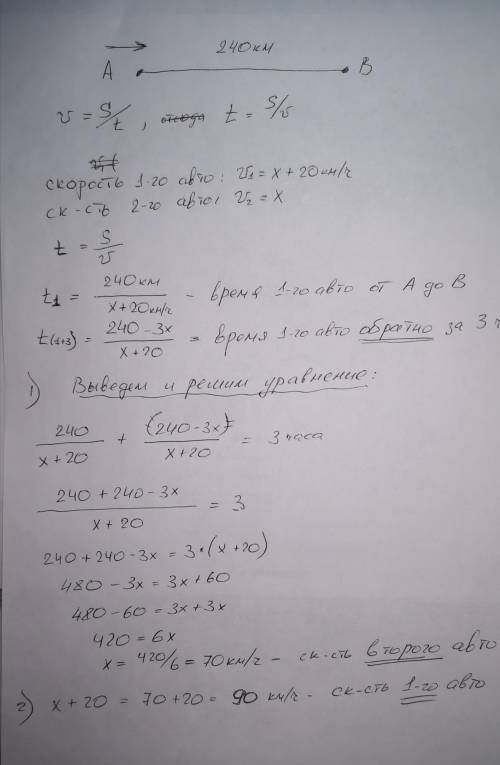 240км
A B
v = S/t, отсюда t = S/v
скорость 1-го авто: v1 = x + 20км/ч
ск-сть 2-го авто: v2 = x
t = S/v
t1 = 240км/(x+20км/ч) - время 1-го авто от А до В
t(1+3) = (240-3x)/(x+20) = время 1-го авто обратно за 3 ч
1) Выведем и решим уравнение:
240/(x+20) + (240-3x)/(x+20) = 3 часа
(240+240-3x)/(x+20) = 3
240+240-3x = 3·(x+20)
480-3x = 3x+60
480-60 = 3x+3x
420 = 6x
x = 420/6 = 70км/ч - ск-сть второго авто
2) x+20 = 70+20 = 90 км/ч - ск-сть 1-го авто